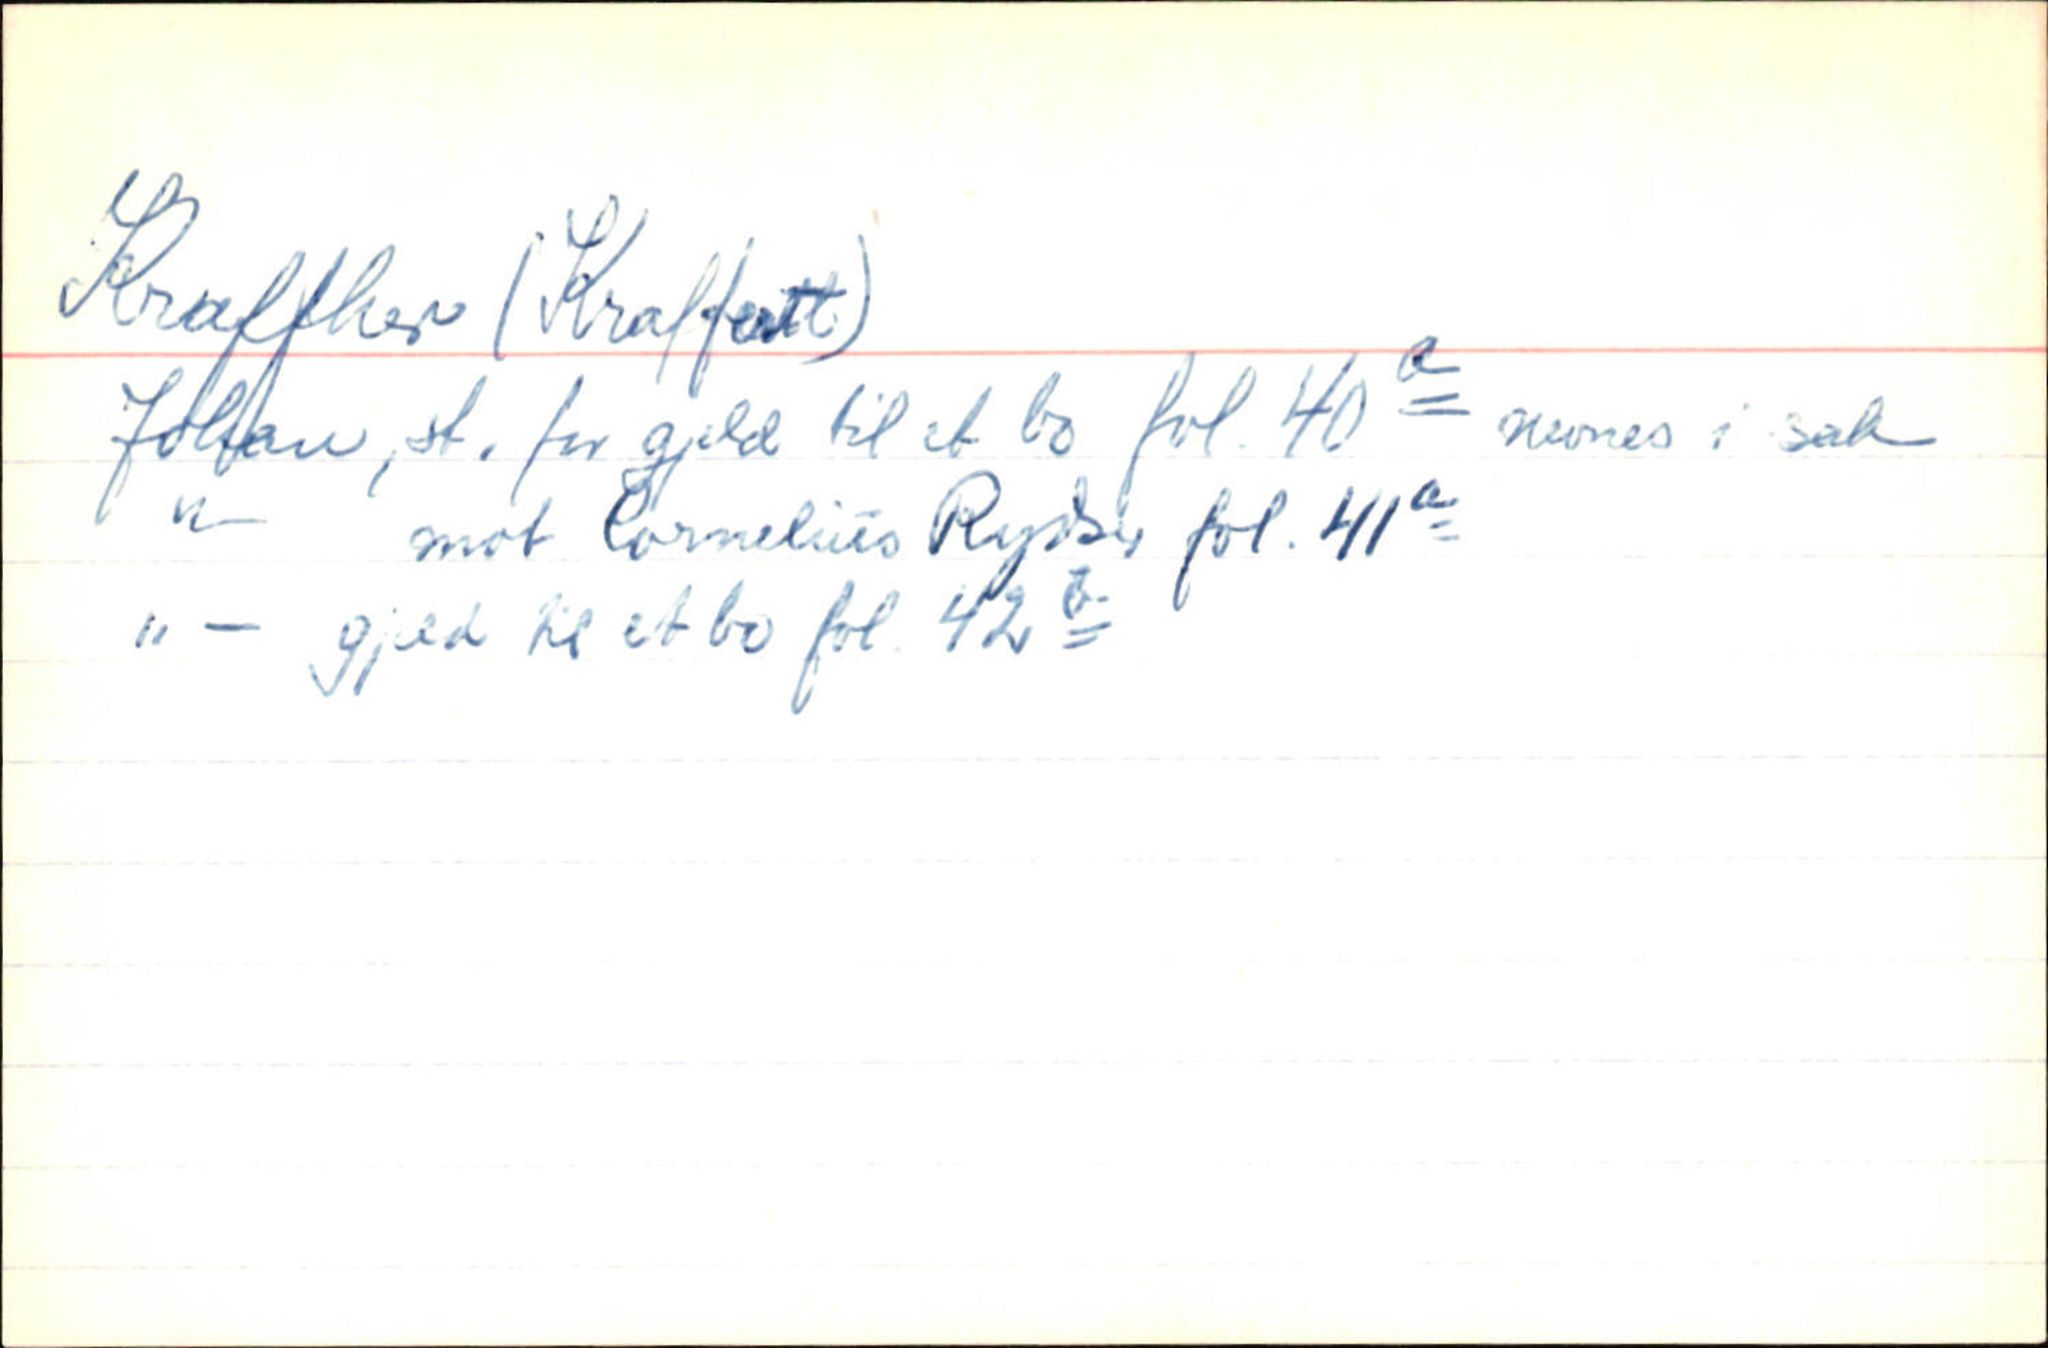 Kraffher (Kraffert)
Johan, st. for gjeld til et bo fol. 40 a nevnes i sak
" mot Cornelius Ryds fol. 41 a
" — gjeld til et bo fol. 42 b